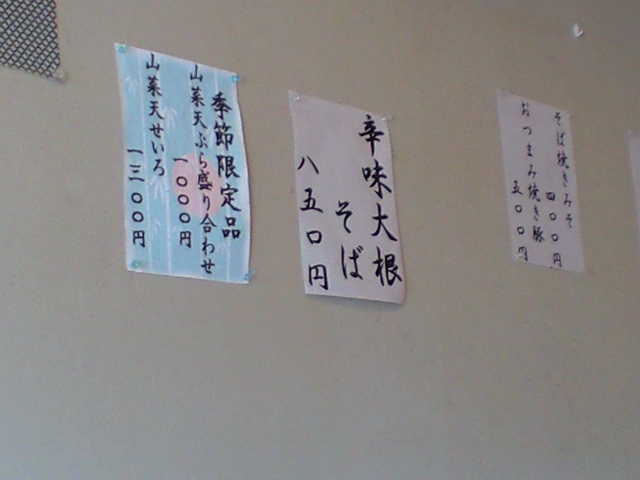 季節限定品
山菜天ぷら盛り合わせ
一〇〇〇円
山菜天せいろ
一三〇〇円
辛味大根
そば
八五〇円
そば焼きみそ
四〇〇円
おつまみ焼き豚
五〇〇円